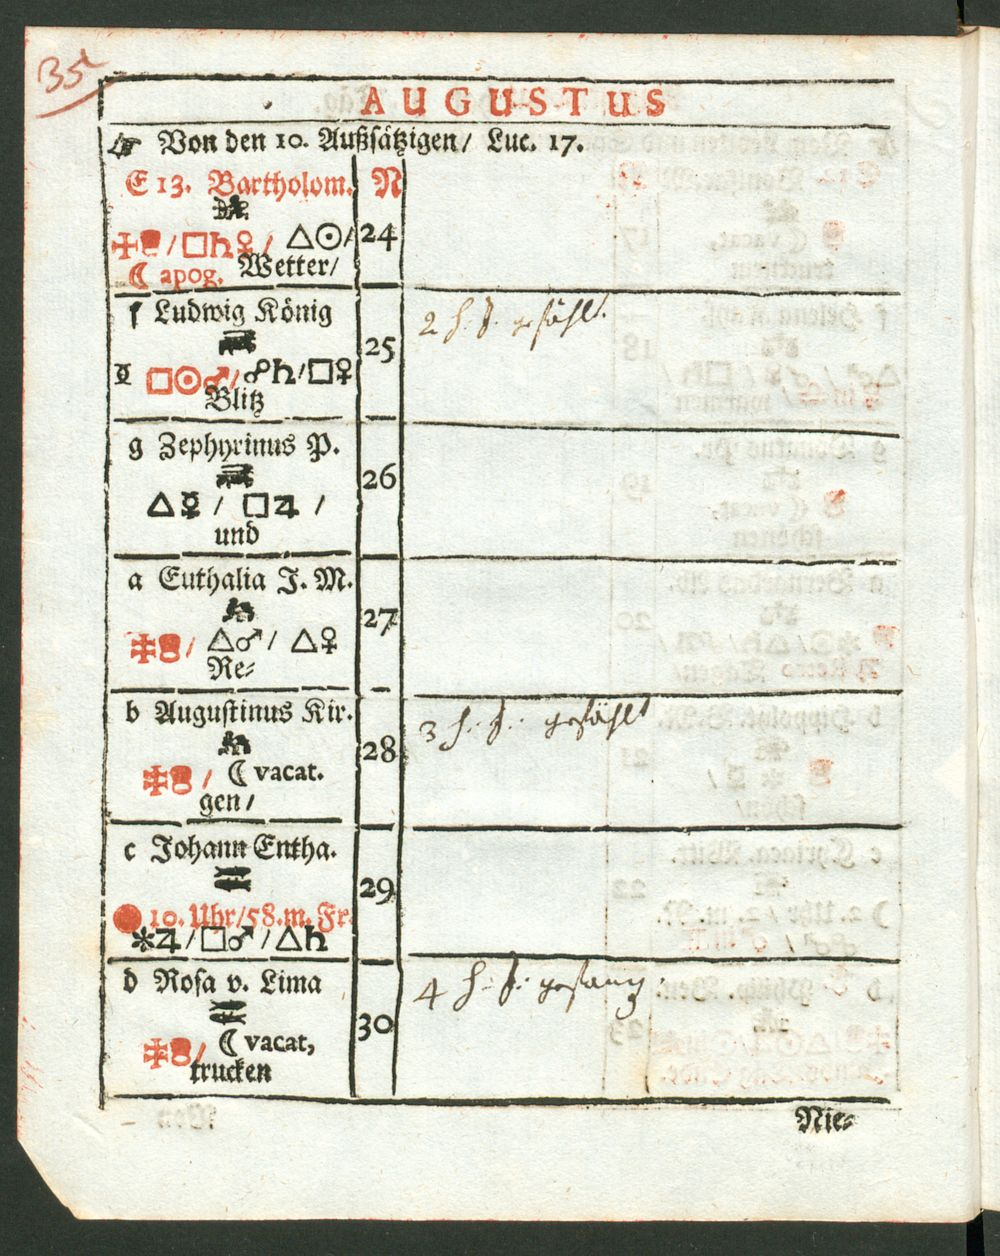 35
AUGUSTUS
☞ Von den 10. Außsätzigen/ Luc. 17.
E 13. Bartholom. N
/ □♄♀ / △☉/ 24
☾ apog. Wetter/
f Ludwig König
2 h: S. gefählt
25
☿ □☉♂/ ☍♄/□♀
Blitz
g Zephyrinus P.
26
△☿ / □♃ /
und
a Euthalia J. M.
27
/ △♂ / △♀
Re⸗
b Augustinus Kir.
3 h: S: gefählt
28
/ ☾ vacat.
gen /
c Johann Entha.
29
● 10. Uhr/58.m. Fr.
✻♃/□♂/△♄
d Rosa v. Lima
4 h: S: gefang
30
/ ☾ vacat,
trucken
Nie⸗